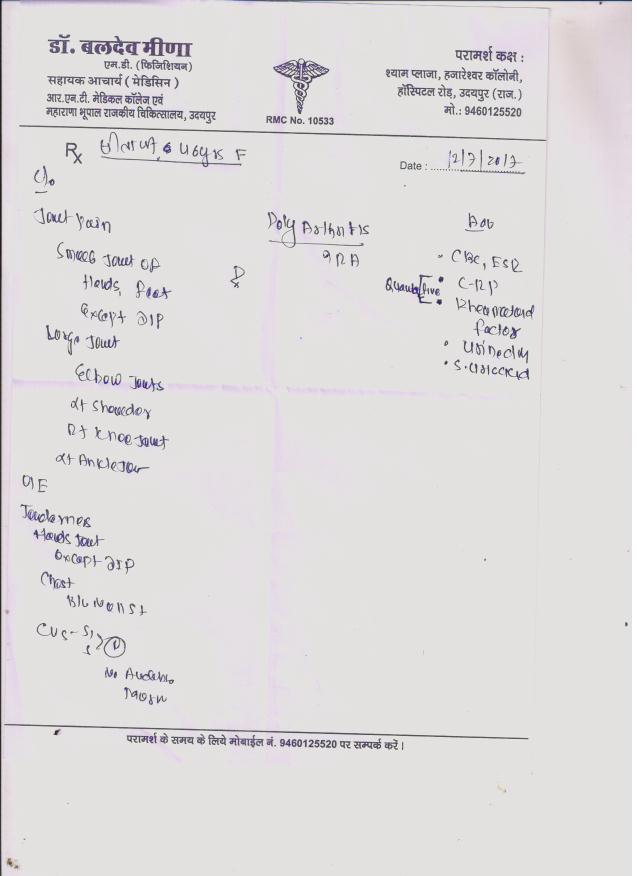 डॉ. बलदेव मीणा
एम.डी. (फिजिशियन)
सहायक आचार्य ( मेडिसिन )
आर.एन.टी. मेडिकल कॉलेज एवं
महाराणा भूपाल राजकीय चिकित्सालय, उदयपुर
RMC No. 10533
परामर्श कक्ष :
श्याम प्लाजा, हजारेश्वर कॉलोनी,
हॉस्पिटल रोड़, उदयपुर (राज.)
मो.: 9460125520
Rx
F
Date : 12/7/2017
C/o
Joint pain
Small Joint of
Hands, feet
Except DIP
Large Joint
Elbow Joints
Lt Shoulder
Rt Knee Joint
Lt Ankle
O/E
Tenderness
Hands Joint
Except DIP
Chest
CVS - S1
S
N
No Audible
Poly Arthritis
? RA
Adv
• CBC, ESR
Quantitive • CRP
• Rheumatoid
factor
•
• S. Uric Acid
परामर्श के समय के लिये मोबाईल नं. 9460125520 पर सम्पर्क करें।